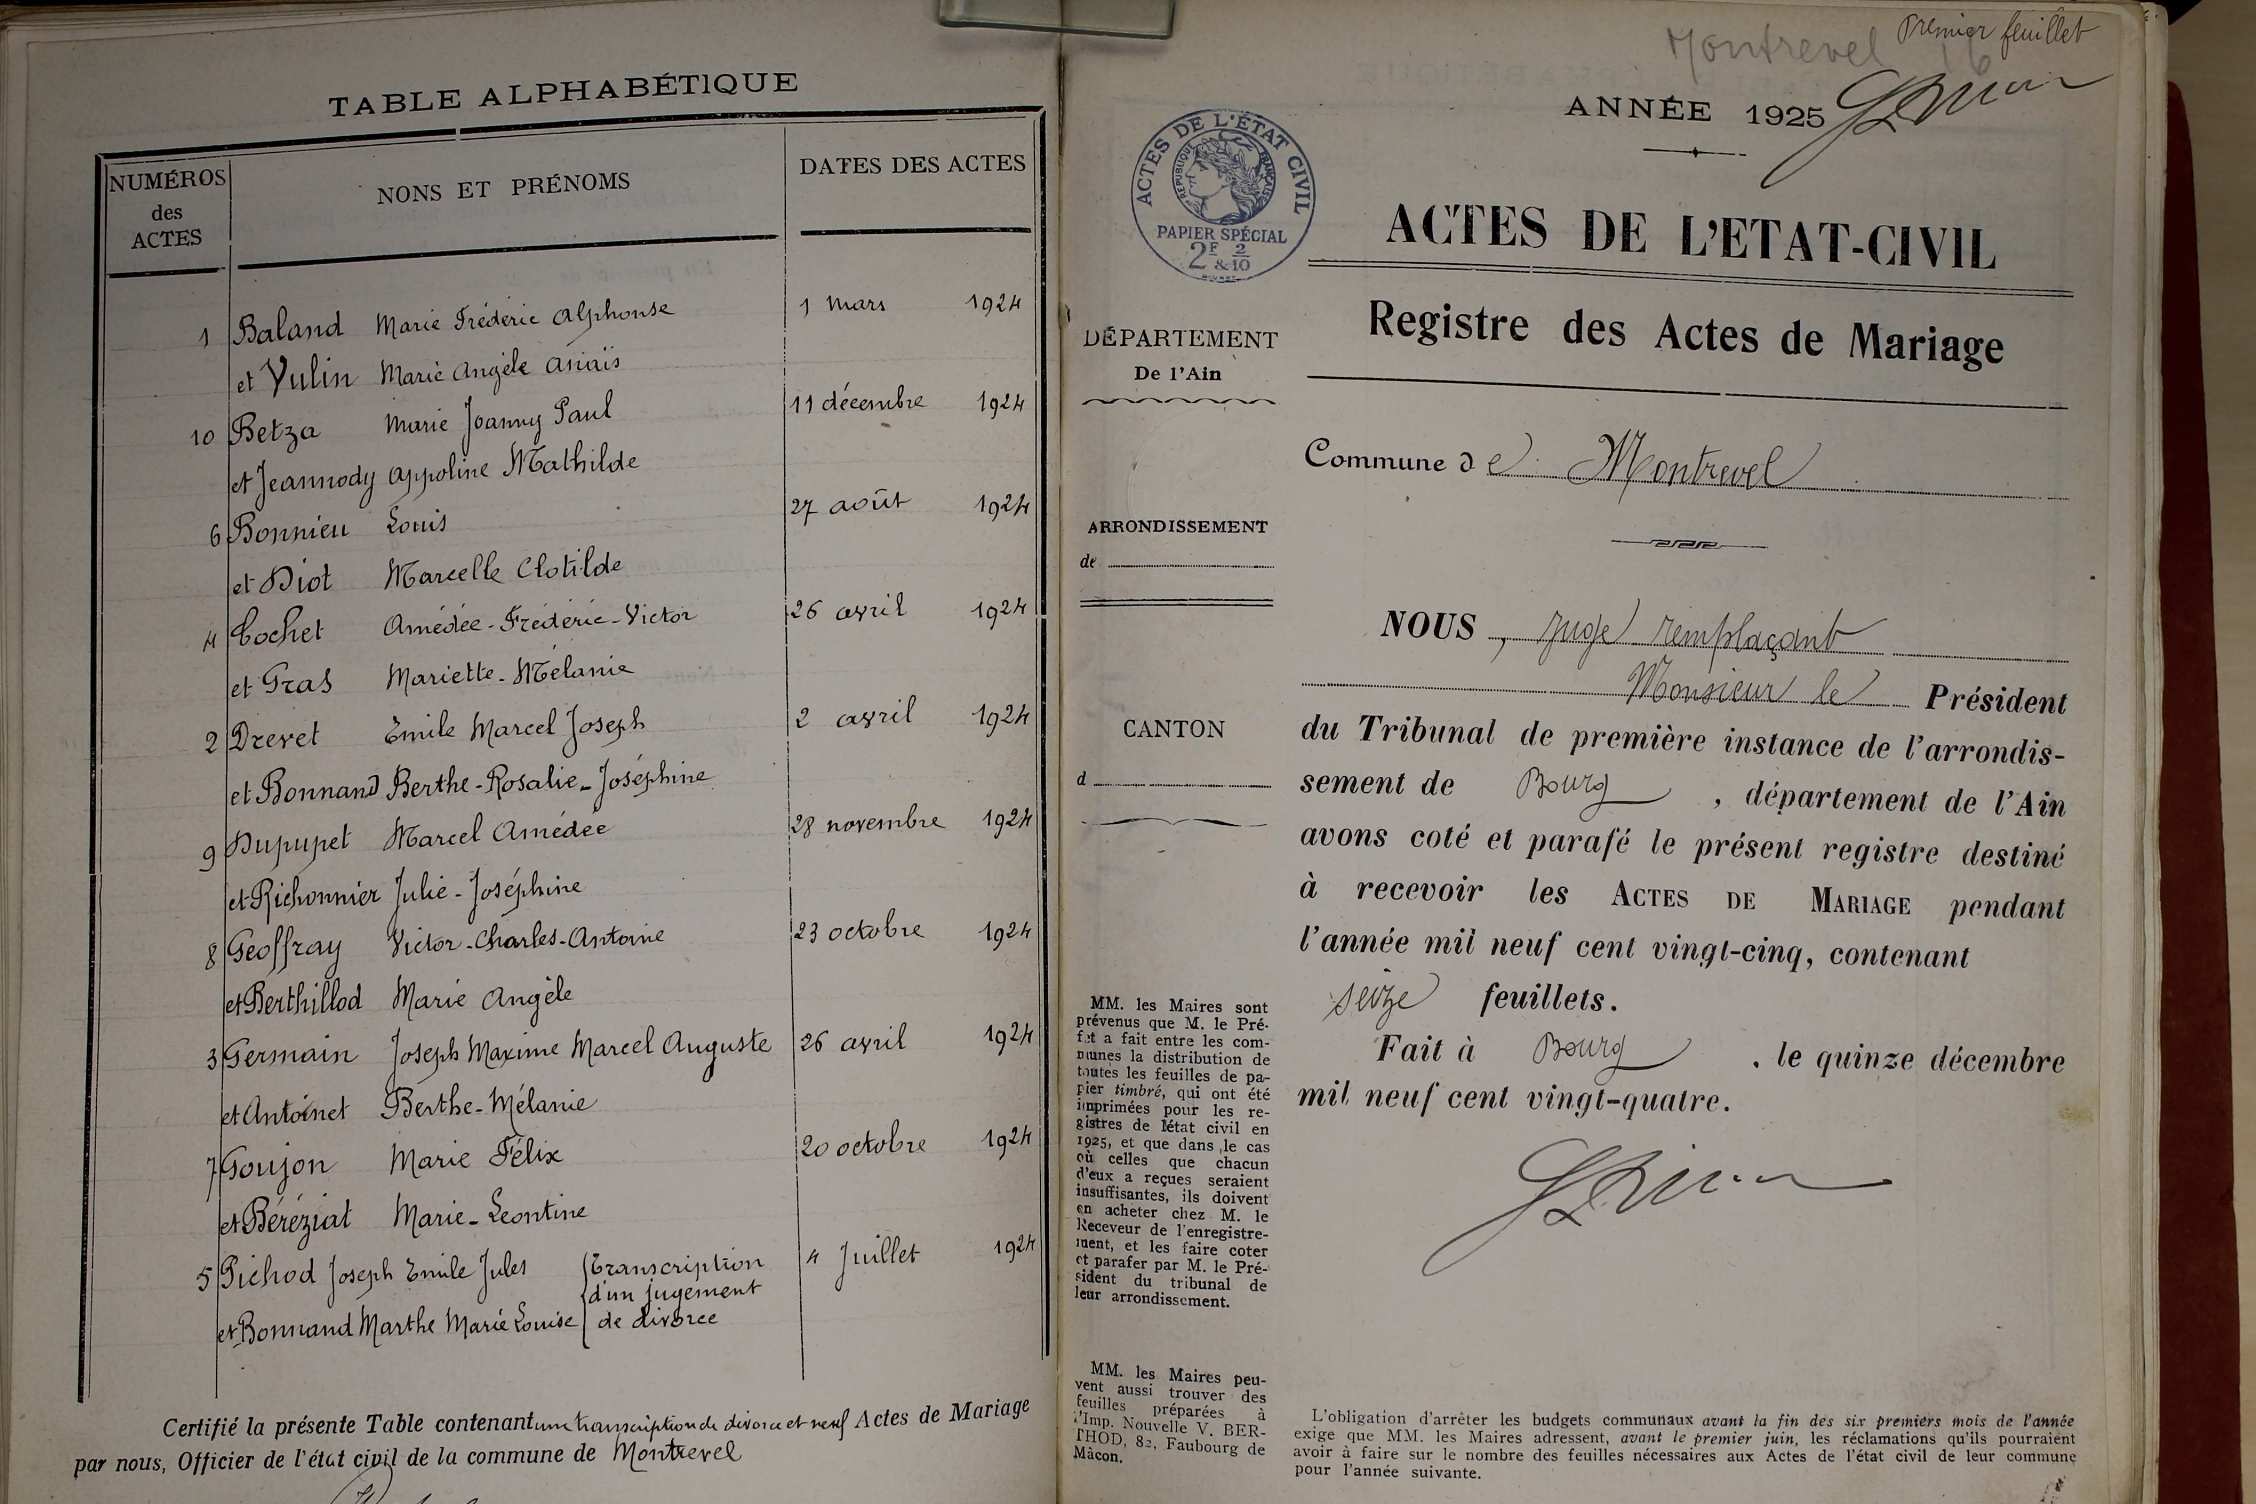 TABLE ALPHABÉTIQUE
NUMÉROS des ACTES
NONS ET PRÉNOMS
DATES DES ACTES
1 Baland Marie Frédéric Alphonse 1 mars 1924
et Vulin Marie Angèle Anaïs
10 Betza Marie Joanny Paul 11 décembre 1924
et Jeannody Appoline Mathilde
6 Bonnieu Louis 27 août 1924
et Diot Marcelle Clotilde
4 Cochet Amédée-Frédéric-Victor 26 avril 1924
et Gras Mariette-Mélanie
2 Drevet Emile Marcel Joseph 2 avril 1924
et Bonnand Berthe-Rosalie-Joséphine
9 Dupupet Marcel Amédée 28 novembre 1924
et Richonnier Julie-Joséphine
8 Geoffray Victor-Charles-Antoine 23 octobre 1924
et Berthillod Marie Angèle
3 Germain Joseph Maxime Marcel Auguste 26 avril 1924
et Antoinet Berthe-Mélanie
7 Goujon Marie Félix 20 octobre 1924
et Béréziat Marie-Leontine
5 Pichod Joseph Emile Jules (Transcription 4 Juillet 1924
d'un jugement
et Bonnand Marthe Marie Louise de divorce
Certifié la présente Table contenant une transcription de divorce et neuf Actes de Mariage
par nous, Officier de l'état civil de la commune de Montrevel
Montrevel 16
Premier feuillet
ANNÉE 1925
ACTES DE L'ÉTAT CIVIL
RÉPUBLIQUE FRANÇAISE
PAPIER SPÉCIAL
2F & 2/10
ACTES DE L'ETAT-CIVIL
Registre des Actes de Mariage
DÉPARTEMENT
De l'Ain
Commune de Montrevel
ARRONDISSEMENT
de
CANTON
d
NOUS, Juge remplaçant
Monsieur le Président
du Tribunal de première instance de l'arrondis-
sement de Bourg, département de l'Ain
avons coté et parafé le présent registre destiné
à recevoir les ACTES DE MARIAGE pendant
l'année mil neuf cent vingt-cinq, contenant
seize feuillets.
Fait à Bourg, le quinze décembre
mil neuf cent vingt-quatre.
MM. les Maires sont
prévenus que M. le Pré-
fet a fait entre les com-
munes la distribution de
toutes les feuilles de pa-
pier timbré, qui ont été
imprimées pour les re-
gistres de l'état civil en
1925, et que dans le cas
où celles que chacun
d'eux a reçues seraient
insuffisantes, ils doivent
en acheter chez M. le
Receveur de l'enregistre-
ment, et les faire coter
et parafer par M. le Pré-
sident du tribunal de
leur arrondissement.
MM. les Maires peu-
vent aussi trouver des
feuilles préparées à
l'Imp. Nouvelle V. BER-
THOD, 82, Faubourg de
Mâcon.
L'obligation d'arrêter les budgets communaux avant la fin des six premiers mois de l'année
exige que MM. les Maires adressent, avant le premier juin, les réclamations qu'ils pourraient
avoir à faire sur le nombre des feuilles nécessaires aux Actes de l'état civil de leur commune
pour l'année suivante.